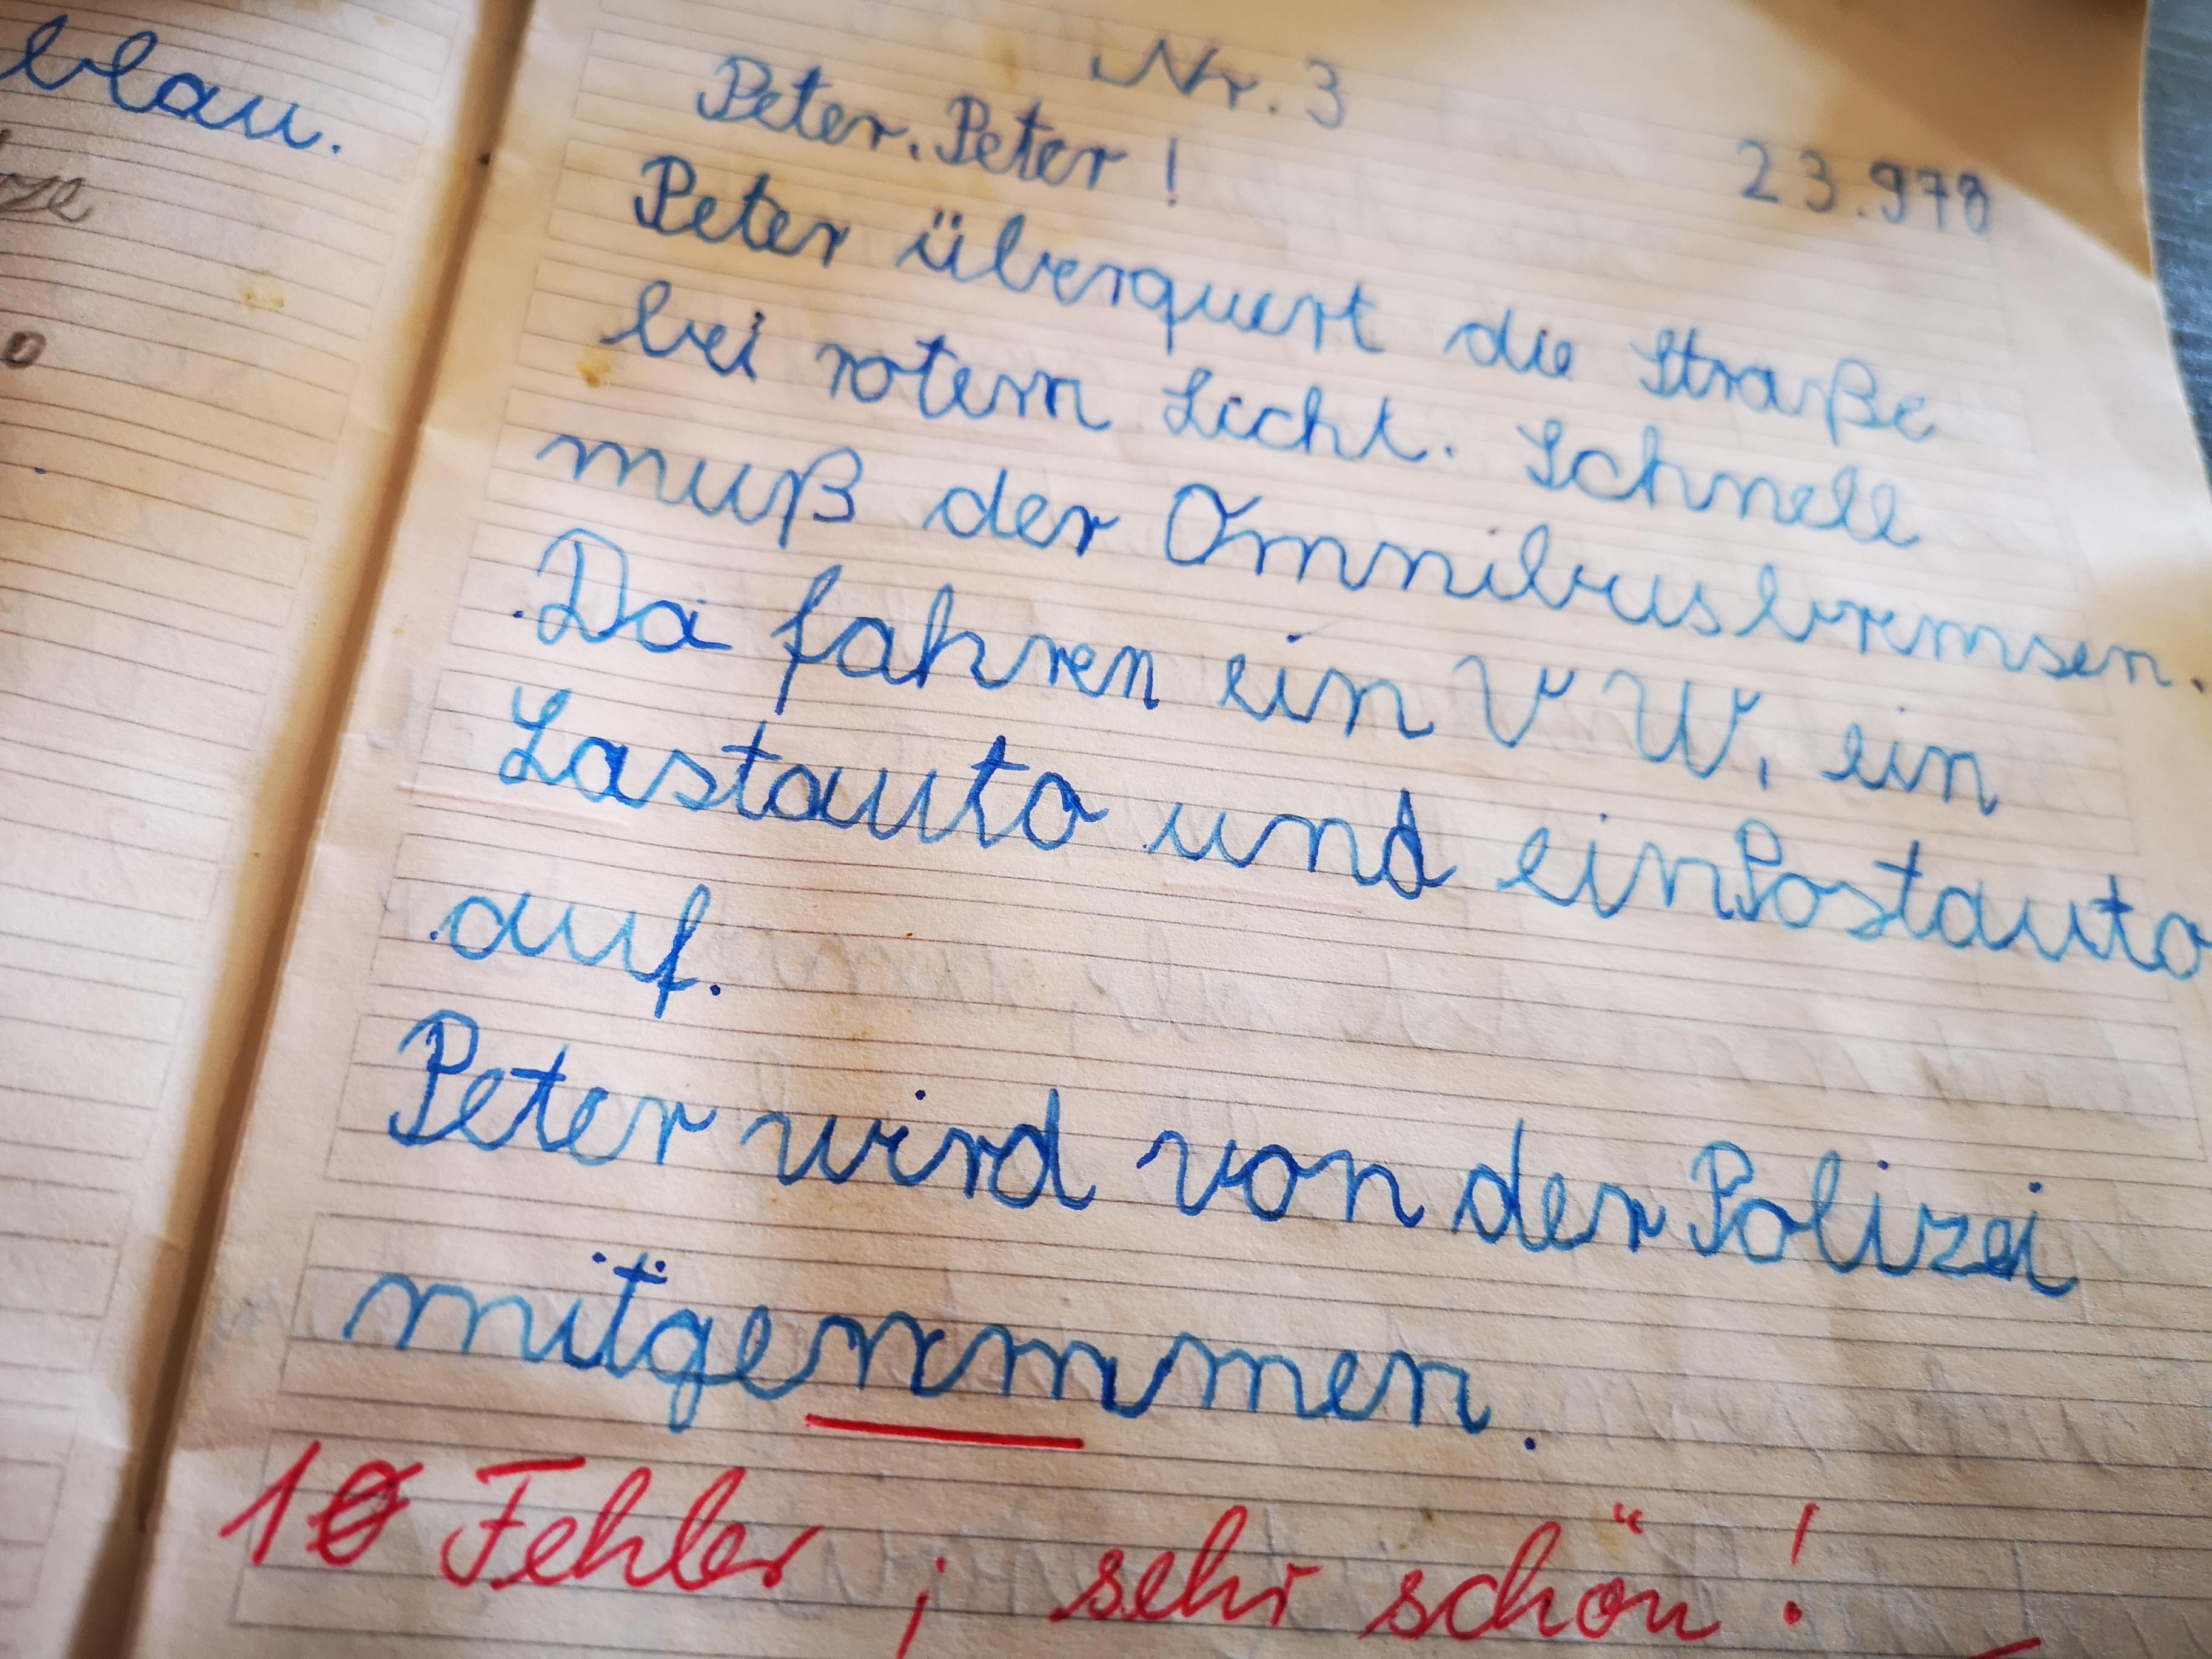 blau.
Nr. 3
Peter, Peter!
23.978
Peter überquert die Straße
bei rotem Licht. Schnell
muß der Omnibus bremsen.
Da fahren ein VW, ein
Lastauto und ein Postauto
auf.
Peter wird von der Polizei
mitgenmmen.
1 Fehler, sehr schön!